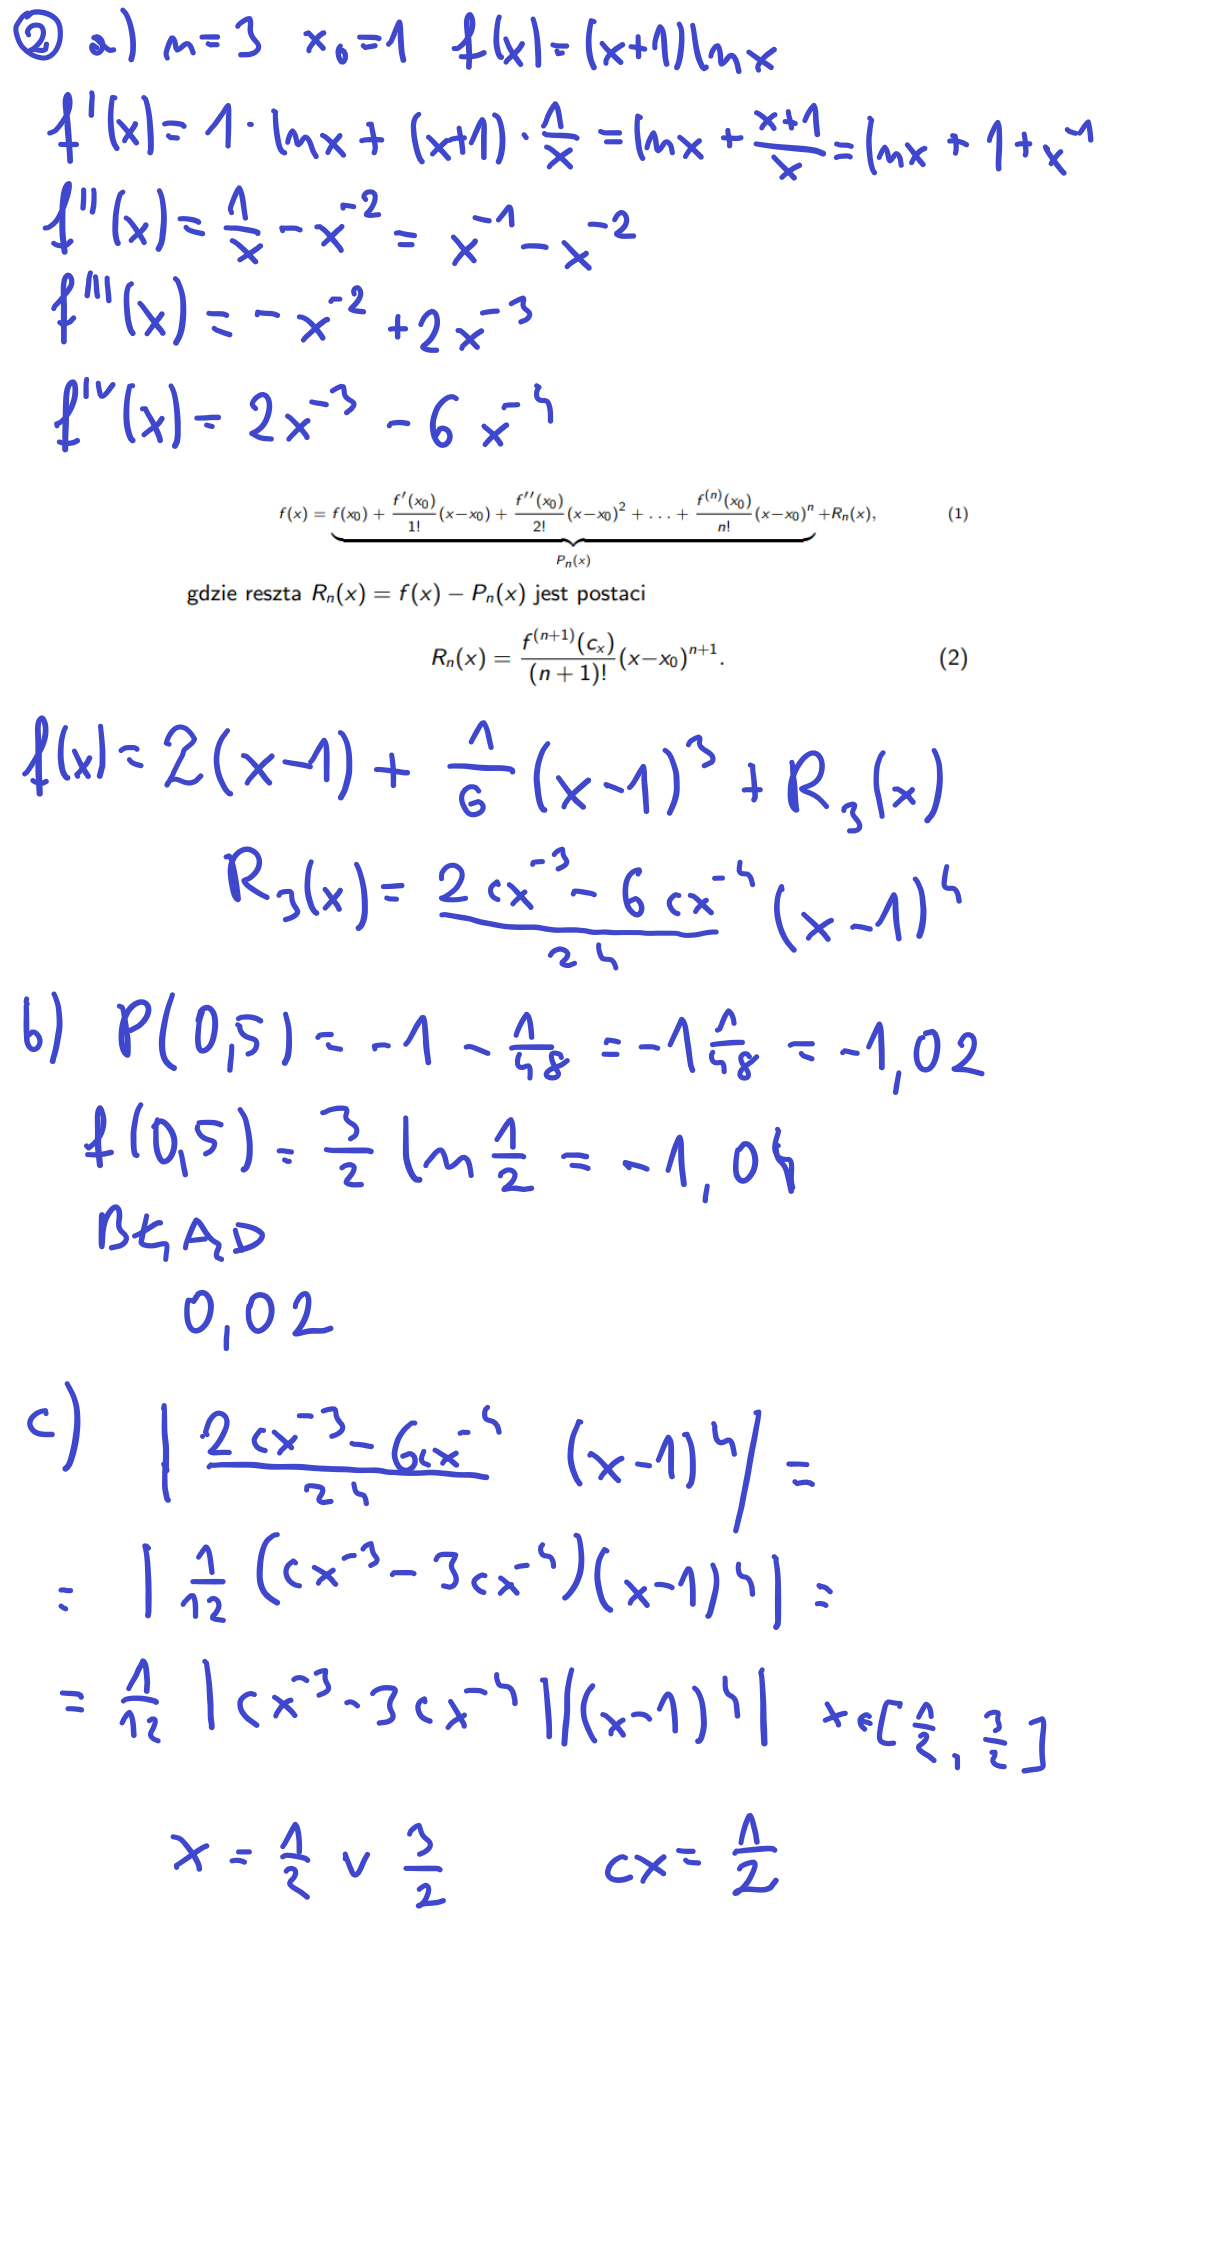 ② a) n=3 x₀=1 f(x)=(x+1)lnx
f'(x)=1·lnx+(x+1)·1/x=lnx+(x+1)/x=lnx+1+x⁻¹
f''(x)=1/x-x⁻²=x⁻¹-x⁻²
f'''(x)=-x⁻²+2x⁻³
f^IV(x)=2x⁻³-6x⁻⁴
f(x) = f(x₀) + f'(x₀)/1! (x−x₀) + f''(x₀)/2! (x−x₀)² + ... + f⁽ⁿ⁾(x₀)/n! (x−x₀)ⁿ +Rₙ(x), (1)
Pₙ(x)
gdzie reszta Rₙ(x) = f(x) − Pₙ(x) jest postaci
Rₙ(x) = f⁽ⁿ⁺¹⁾(cₓ)/(n + 1)! (x−x₀)ⁿ⁺¹. (2)
f(x)=2(x-1)+1/6(x-1)³+R₃(x)
R₃(x)=(2cx⁻³-6cx⁻⁴)/24 (x-1)⁴
b) P(0,5)=-1-1/48=-1 1/48=-1,02
f(0,5)=3/2 ln 1/2=-1,04
BŁĄD
0,02
c) |(2cx⁻³-6cx⁻⁴)/24 (x-1)⁴|=
=|1/12(cx⁻³-3cx⁻⁴)(x-1)⁴|=
=1/12|cx⁻³-3cx⁻⁴||(x-1)⁴| x∈[1/2,3/2]
x=1/2 v 3/2 cx=1/2